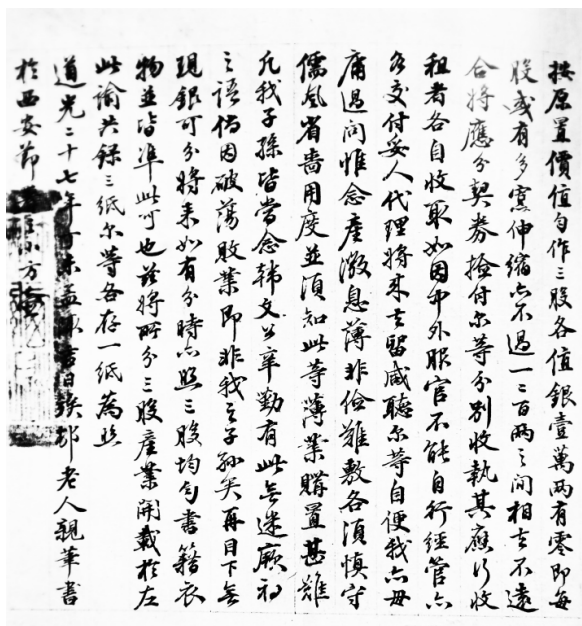 按原置價值匀作三股各值銀壹萬两有零即每
股或有多寡伸縮亦不過一二百两之間相去不遠
合將應分契券撿付尔等分别收執其應行收
租者各自收取如因中外服官不能自行經管亦
必交付妥人代理將來去留咸聽尔等自便我亦毋
庸過問惟念產微息薄非儉難敷各須慎守
儒風省嗇用度並須知此等薄業購置甚難
凡我子孫皆當念韓文公辛勤有此無迷厥初
之語倘因破蕩敗業即非我之子孫矣再目下無
現銀可分將來如有分時亦照三股均匀書籍衣
物並皆準此可也茲將所分三股產業開載於左
此諭共錄三紙尔等各存一紙為照
道光二十七年丁未孟秋吉日竢邨老人親筆書
於西安節署小方壺